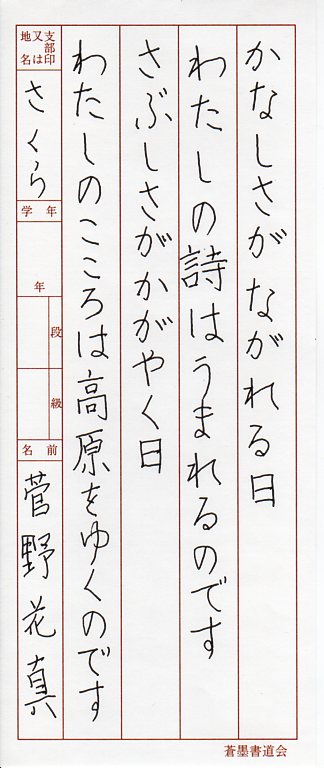 かなしさがながれる日
わたしの詩はうまれるのです
さぶしさがかがやく日
わたしのこころは高原をゆくのです
支部印
又は
地名
さくら
学年
年
段
級
名前
菅野花真
蒼墨書道会